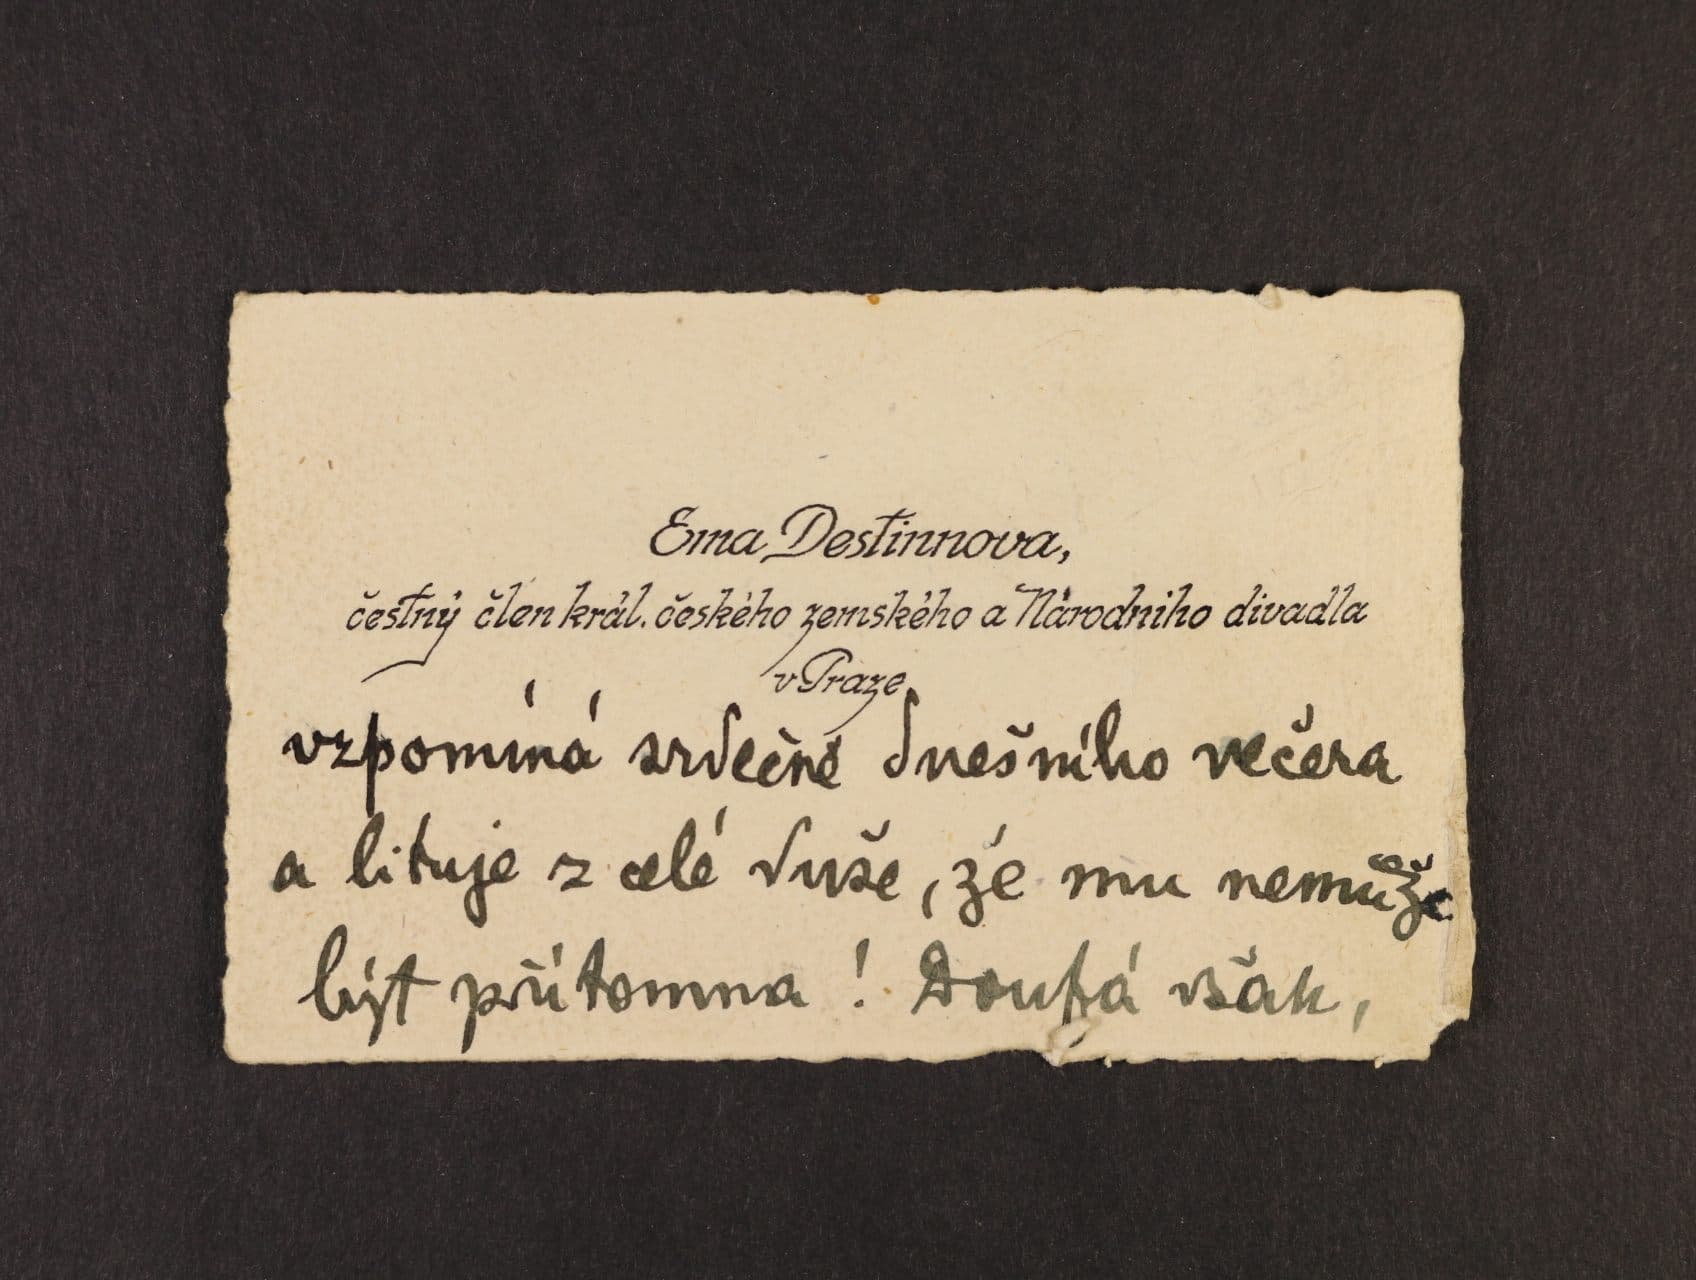 Ema Destinnova,
čestný člen král. českého zemského a Národniho divadla
v Praze
vzpomíná srdečně dnešního večera
a lituje z celé duše, že mu nemůže
být přítomna! Doufá však,